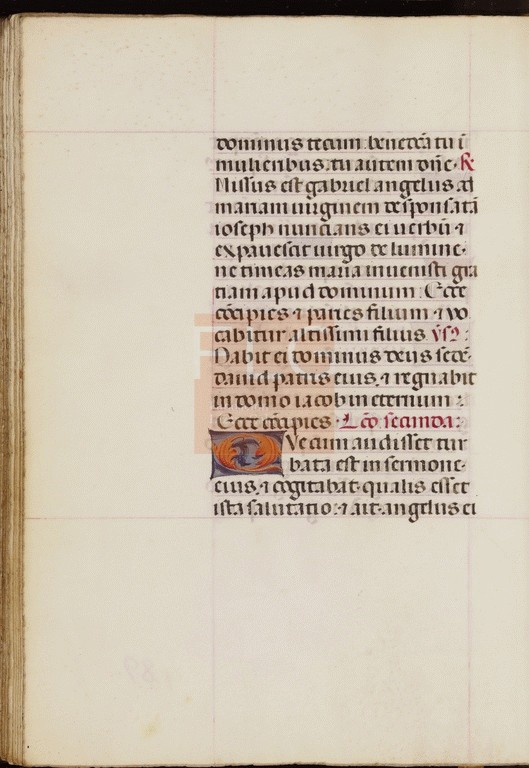 dominus tecum. benedc̄a tu ī
mulieribus. tu autem dn̄e. R̄
Missus est gabriel angelus ad
mariam uirginem desponsatā
ioseph nuncians ei uerbū ⁊
expauescit uirgo de lumine.
ne timeas maria inuenisti gra
tiam apud dominum: Ecce
cōcipies ⁊ paries filium ⁊ vo
cabitur altissimi filius v̄s:
Dabit ei dominus deus sedē.
dauid patris eius. ⁊ regnabit
in domo iacob in eternum:
Ecce cōcipies. Lc̄o. secunda:
Que cum audisset tur
bata est in sermone.
eius. ⁊ cogitabat. qualis esset
ista salutatio: ⁊ ait. angelus ei